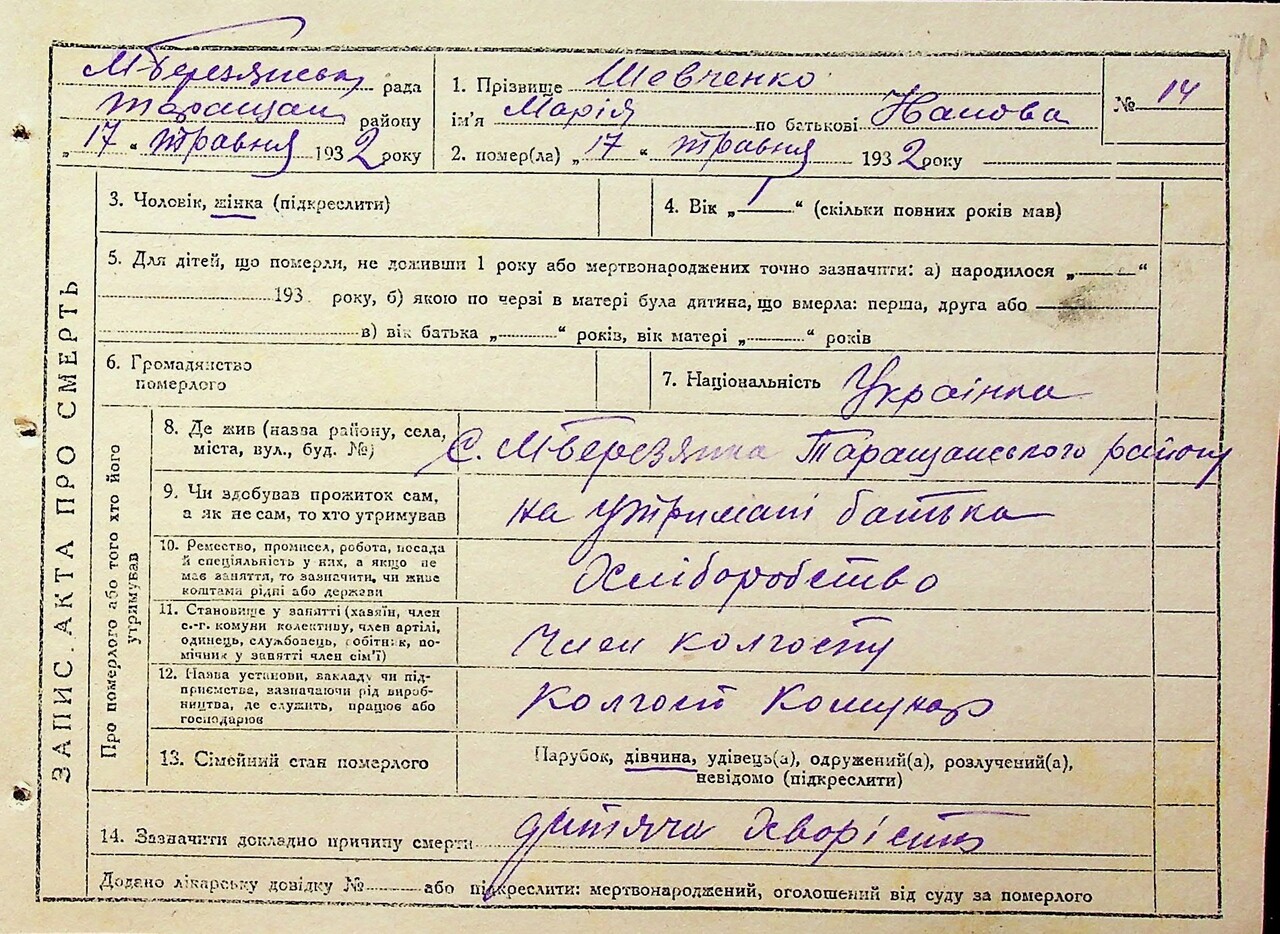 14
М-Березянська рада
Таращан району
„17“ травня 1932 року
1. Прізвище Шевченко
ім'я Марія по батькові
2. помер(ла) „17“ травня 1932 року
№ 14
ЗАПИС АКТА ПРО СМЕРТЬ
3. Чоловік, жінка (підкреслити)
4. Вік „1“ (скільки повних років мав)
5. Для дітей, що померли, не доживши 1 року або мертвонароджених точно зазначити: а) народилося „ “
193 року, б) якою по черзі в матері була дитина, що вмерла: перша, друга або
в) вік батька „ “ років, вік матері „ “ років
6. Громадянство
померлого
7. Національність Українка
Про померлого або того хто його
утримував
8. Де жив (назва району, села,
міста, вул., буд. №)
С. М-Березянка Таращанського району
9. Чи здобував прожиток сам,
а як не сам, то хто утримував
на утримані батька
10. Ремество, промисел, робота, посада
й спеціяльність у них, а якщо не
має заняття, то зазначити, чи живе
коштами рідні або держави
Хліборобство
11. Становище у занятті (хазяїн, член
с.-г. комуни колективу, член артілі,
одинець, службовець, робітник, по-
мічник у занятті член сім'ї)
Член колгоспу
12. Назва установи, закладу чи під-
приємства, зазначаючи рід вироб-
ництва, де служить, працює або
господарює
Колгосп Комунар
13. Сімейний стан померлого
Парубок, дівчина, удівець(а), одружений(а), розлучений(а),
невідомо (підкреслити)
14. Зазначити докладно причину смерти дитяча хворість
Додано лікарську довідку № або підкреслити: мертвонароджений, оголошений від суду за померлого